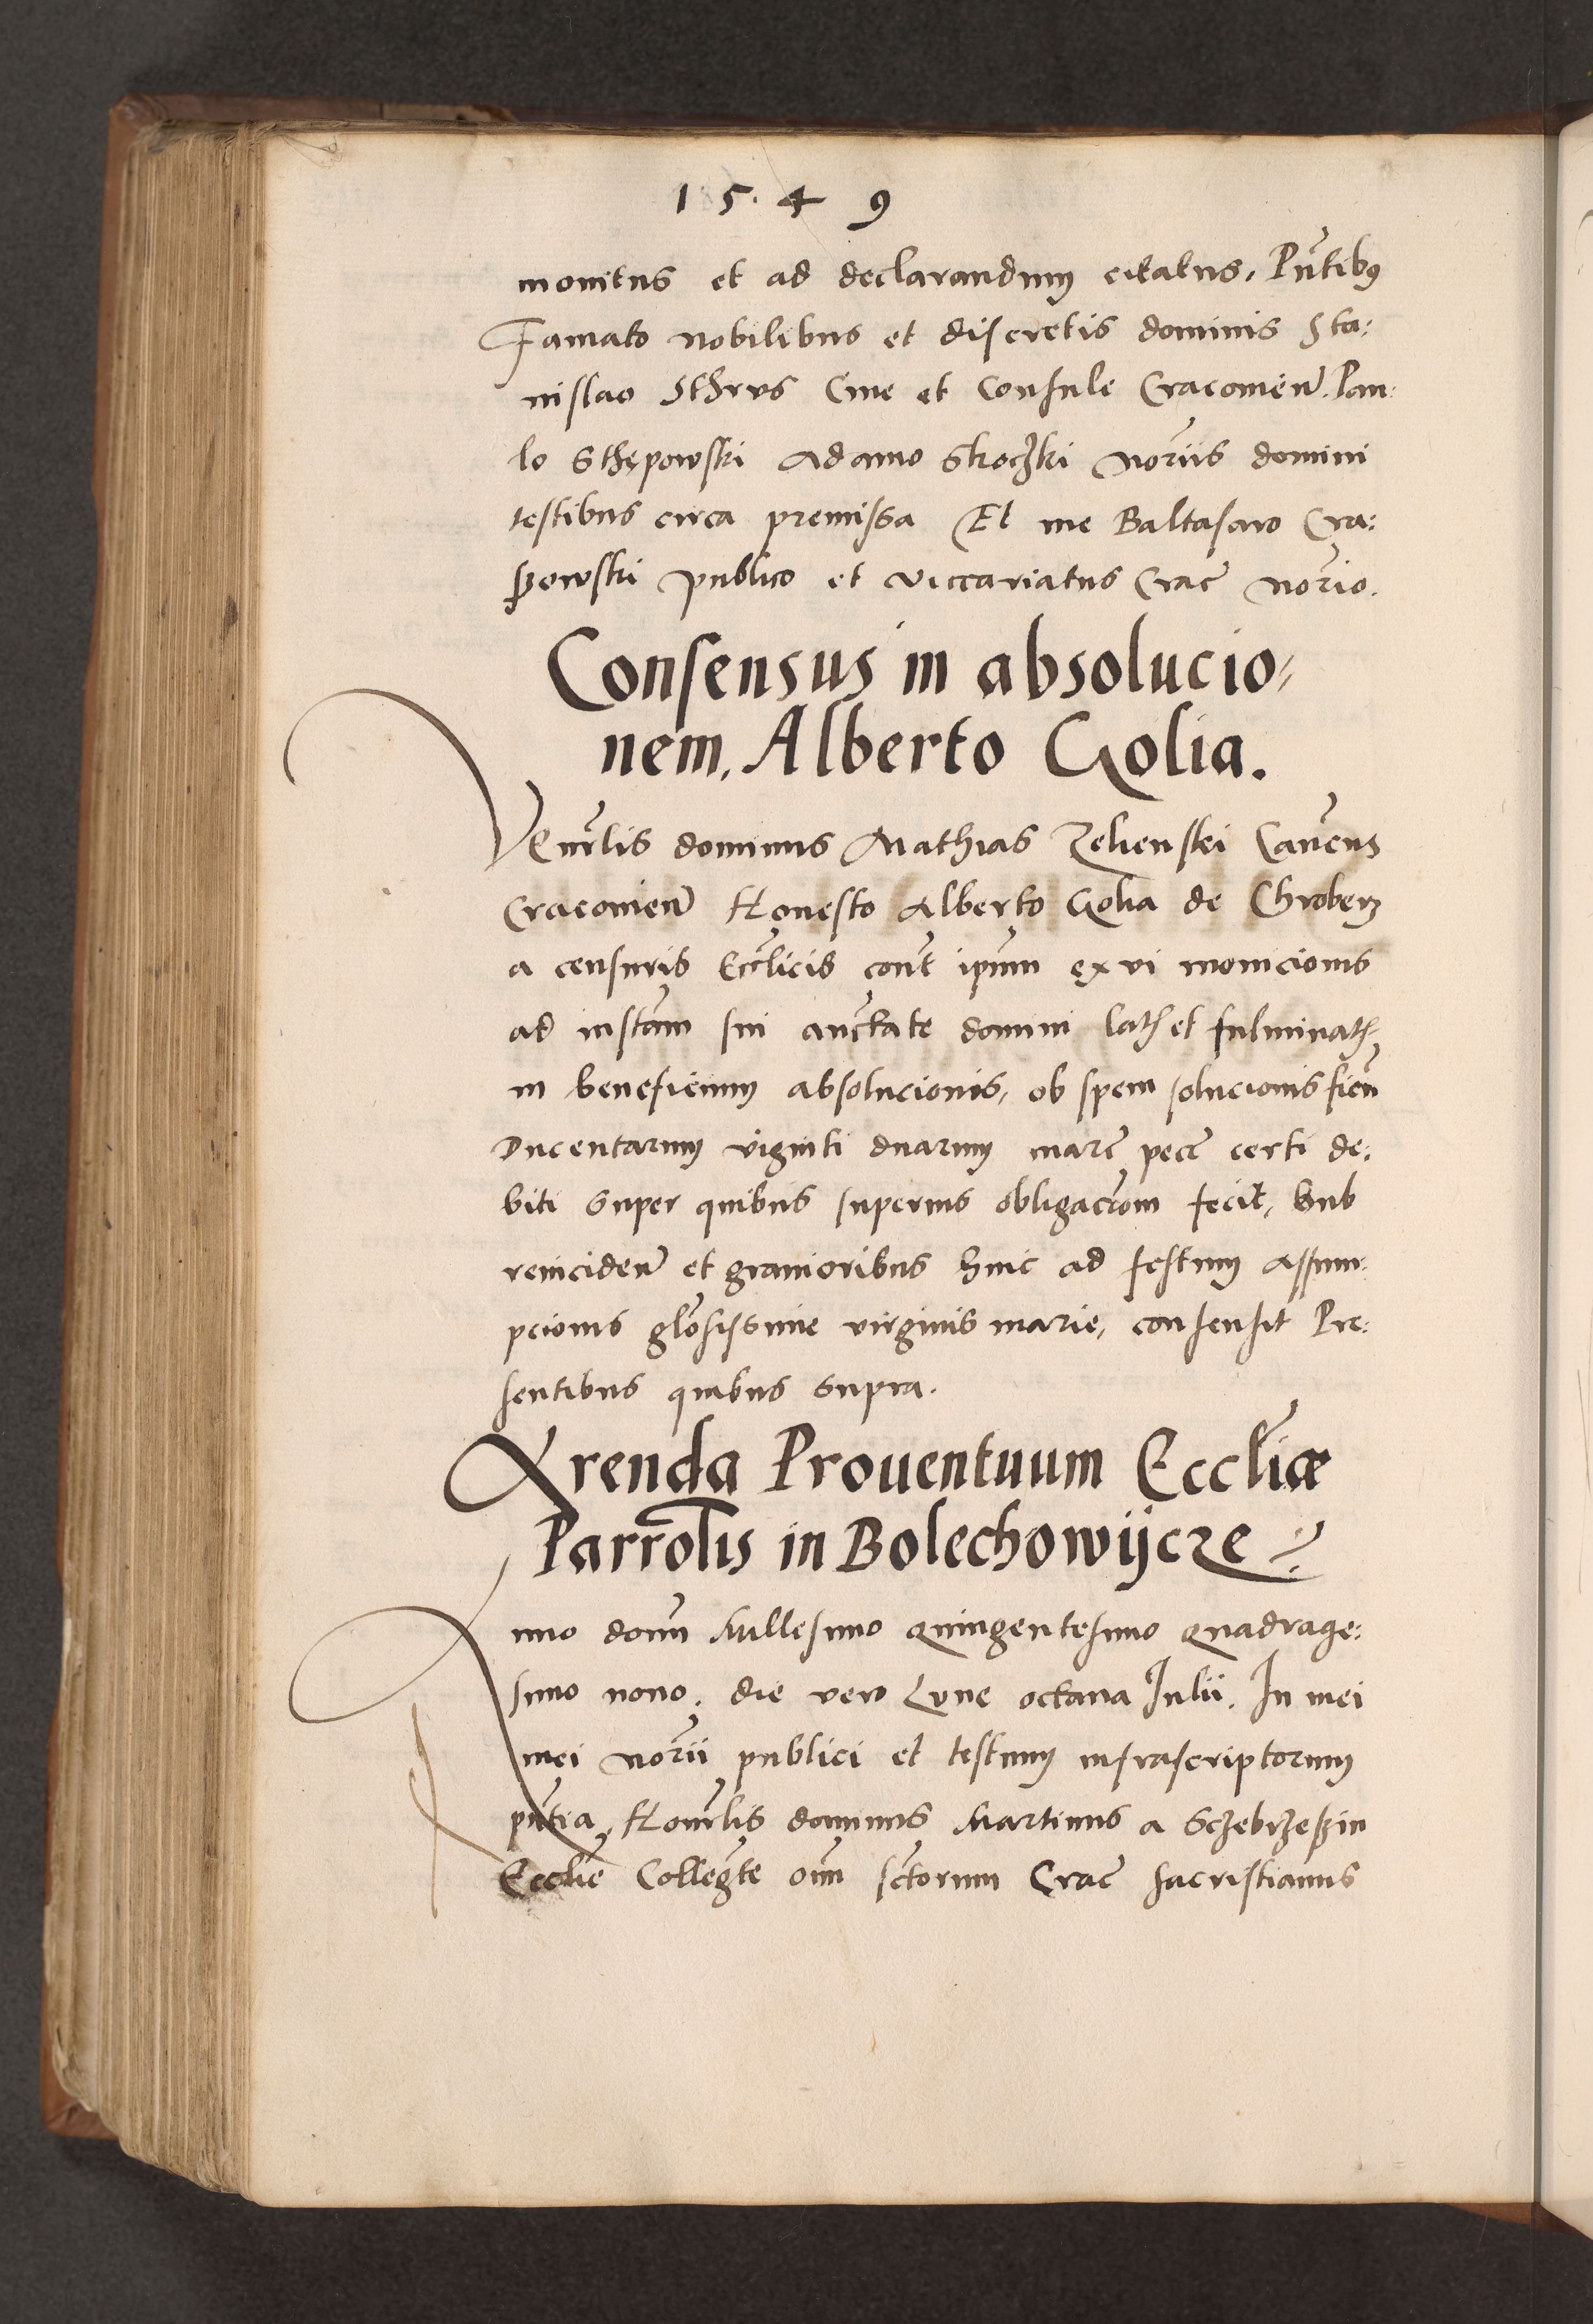 15.49
monitus et ad declarandum citatus, Pntibus
Famato nobilibus et discretis dominis Sta:
nislao Sthrus Cive et Consule Cracovien. Pau:
lo Sthępowski Adamo Skoczki Noriis domini
testibus circa premissa Et me Baltasaro Cra:
szowski publico et viccariatus Crac norio.
Consensus in absolucio/
nem, Alberto Golia.
Venerlis dominus Mathias Zelienski Canens
Cracovien Honesto Alberto Golia de Chroberz
a censuris Ecclicis cont ipsum ex vi monicionis
ad instam sui auctate domini lath et fulminath
in beneficium absolucionis, ob spem solucionis fien
Ducentarum viginti duarum marc pecc certi de:
biti super quibus superius obligacrom fecit, sub
reinciden et gravioribus hinc ad festum Assum:
pcionis glosissime virginis marie, consensit Pre:
sentibus quibus supra.
Arenda Proventuum Eccliæ
Parrolis in Bolechowijcze
Anno domi Millesimo quingentesimo quadrage:
simo nono, die vero Lune octava Julii. In mei
mei norii publici et testium infrascriptorum
pntia, Honorlis dominus Martinus a Sczebrzeszin
Ecclie Collegte oim sctorum Crac sacristianus